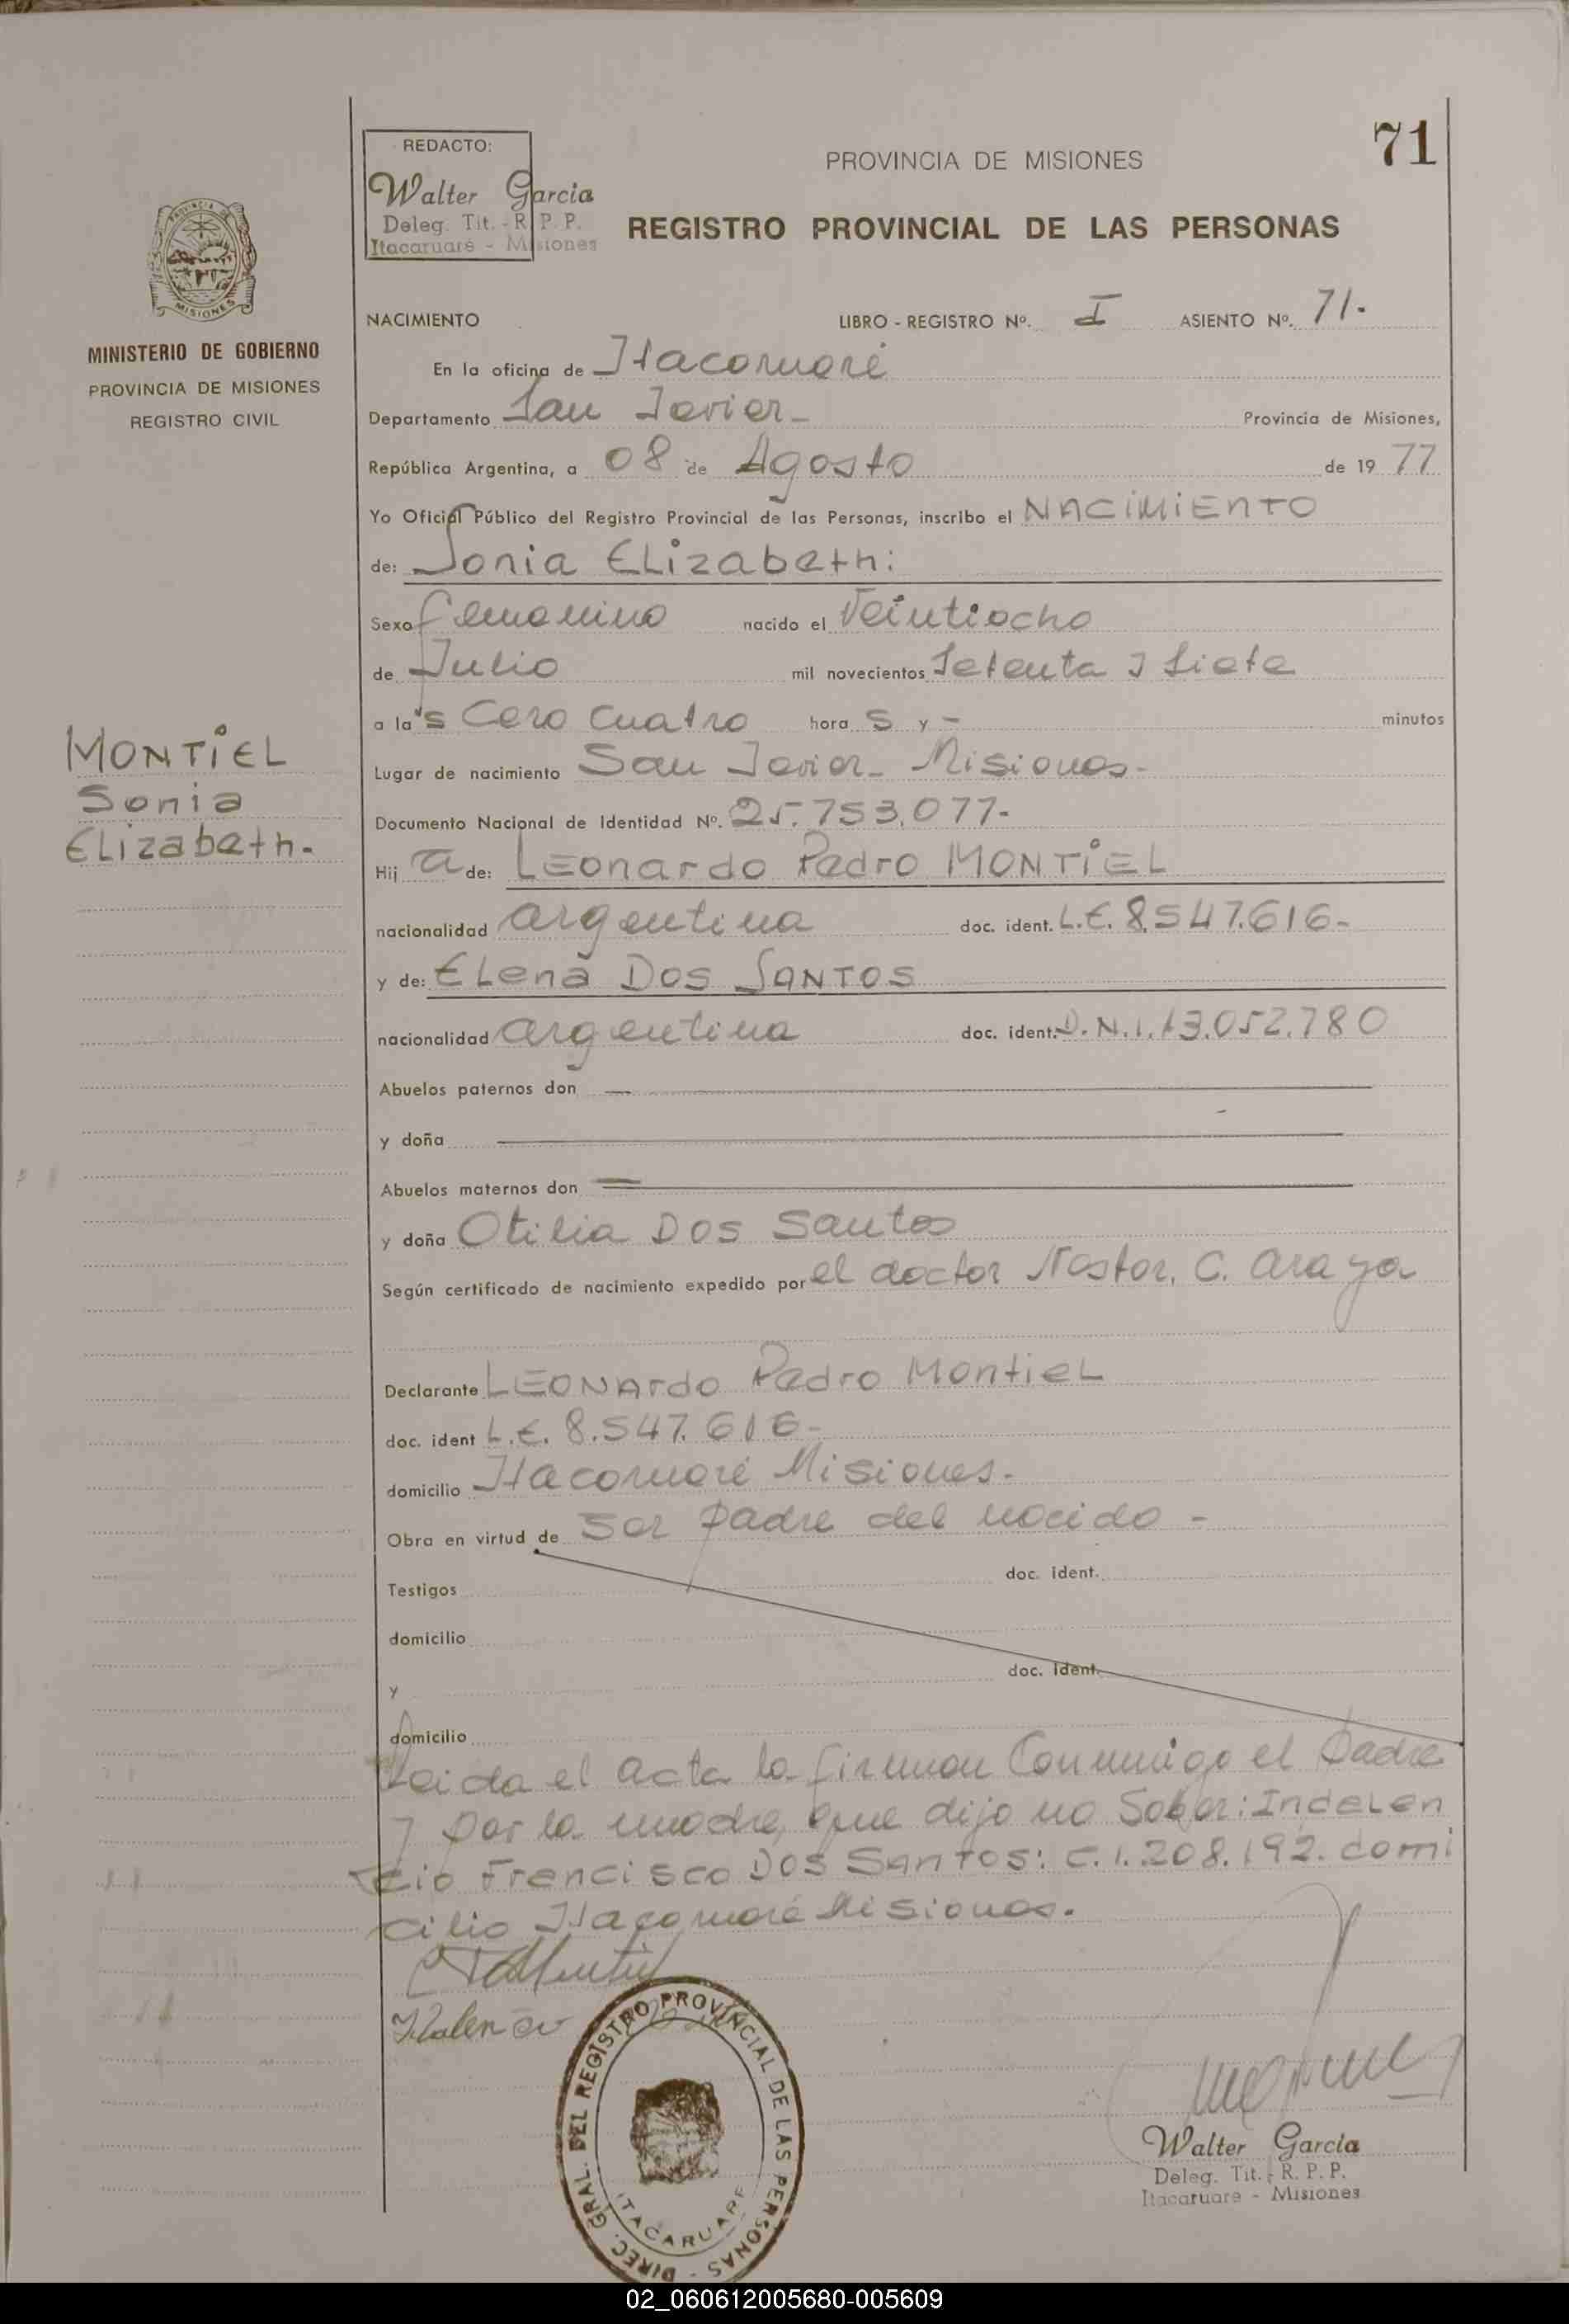 71
REDACTO:
Walter Garcia
Deleg. Tit. - R. P. P.
Itacaruaré - Misiones
PROVINCIA DE MISIONES
REGISTRO PROVINCIAL DE LAS PERSONAS
PROVINCIA DE
MISIONES
MINISTERIO DE GOBIERNO
PROVINCIA DE MISIONES
REGISTRO CIVIL
MONTIEL
Sonia
Elizabeth.
NACIMIENTO LIBRO - REGISTRO Nº. I ASIENTO Nº. 71.
En la oficina de Itacaruaré
Departamento San Javier - Provincia de Misiones,
República Argentina, a 08 de Agosto de 19 77
Yo Oficial Público del Registro Provincial de las Personas, inscribo el NACIMIENTO
de: Sonia Elizabeth:
Sexo femenino nacido el Veintiocho
de Julio mil novecientos Setenta y Siete
a la s Cero Cuatro hora s y - minutos
Lugar de nacimiento San Javier - Misiones -
Documento Nacional de Identidad Nº. 25.753.077-
Hij a de: Leonardo Pedro MONTIEL
nacionalidad argentina doc. ident. L.E. 8.547.616-
y de: Elena DOS SANTOS
nacionalidad argentina doc. ident. D.N.I. 13.052.780
Abuelos paternos don
y doña
Abuelos maternos don
y doña Otilia Dos Santos
Según certificado de nacimiento expedido por el doctor Nestor. C. Araya
Declarante Leonardo Pedro Montiel
doc. ident L.E. 8.547.616-
domicilio Itacaruaré Misiones.
Obra en virtud de ser padre del nacido -
Testigos doc. ident.
domicilio
y doc. ident.
domicilio
Leida el acta la firman Conmigo el padre
y por la madre, que dijo no Saber: Indalen
cio Francisco Dos Santos: C.I. 208.192. domi
cilio Itacaruaré Misiones.
DIREC. GRAL. DEL REGISTRO PROVINCIAL DE LAS PERSONAS -
ITACARUARE
Walter Garcia
Deleg. Tit. - R. P. P.
Itacaruaré - Misiones
02_060612005680-005609